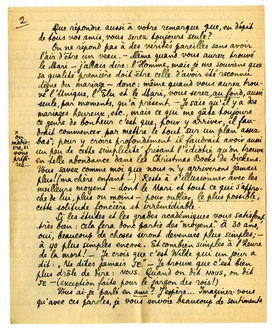 2
Que répondre aussi à votre remarque que, en dépit
de tous vos amis, vous serez toujours seule?
On ne répond pas à des vérités pareilles sans avoir
l'air d'être un veau. - Même quand vous aurez trouvé
le Mari - j'allais dire: l'Homme, mais je me souviens que
sa qualité première doit être celle d'avoir été reconnu
digne du mariage - donc: même quand vous aurez trou-
vé l'Unique, l'Élu et le Mari, vous serez au fond, aussi
seule, par moments, qu'à présent. - Je sais qu'il y a des
mariages heureux, etc, mais ce qui me gâte toujours
ce genre de bonheur c'est que, pour y arriver, il fau-
drait commencer par mettre le tout sur un plan assez
bas; pour y croire profondément il faudrait avoir
un peu de cette simplicité frisant l'idiotie qu'on trouve
en telle abondance dans les Christmas Books de Dickens.
Vous avez comme moi que nous n'y arriverons jamais
plus, ma chère enfant! - Reste à s'illusionner avec les
meilleurs moyens - dont le Mari et tout ce qui s'appro-
che de lui, plus ou moins - pour oublier, le plus possible,
cette solitude foncière et irrémédiable.
Si les études et les grades académiques vous satisfont,
très bien: cela fera donc partie des "moyens". À 30 ans,
oui, beaucoup de choses vous seront plus simples; -
à 40 plus simples encore. Et combien simples à l'heure
de la mort! - Je crois que c'est Wilde qui un jour a
dit: "Ne dites jamais JE - Je trouve que c'est bien
plus drôle de dire: NOUS. Quand on dit NOUS, on dit
JE - (exception faite pour le jargon des rois!)
Vous ai-je parlé en ami? J'espère... Imaginez-vous
qu'avec ces paroles, je vous envoie beaucoup de sentiments